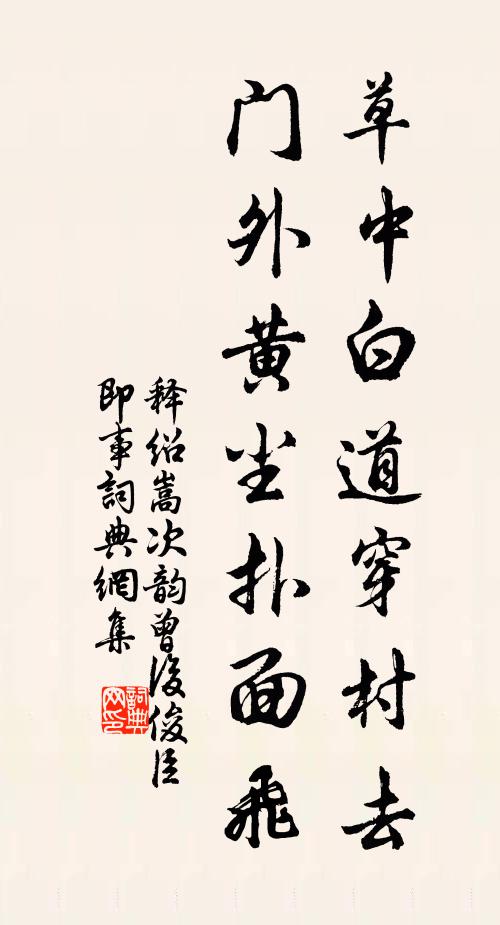 草中白道穿村去
门外黄尘扑面飛
释绍嵩次韵曾浚俊臣
即事詞典網集
詞典
网印